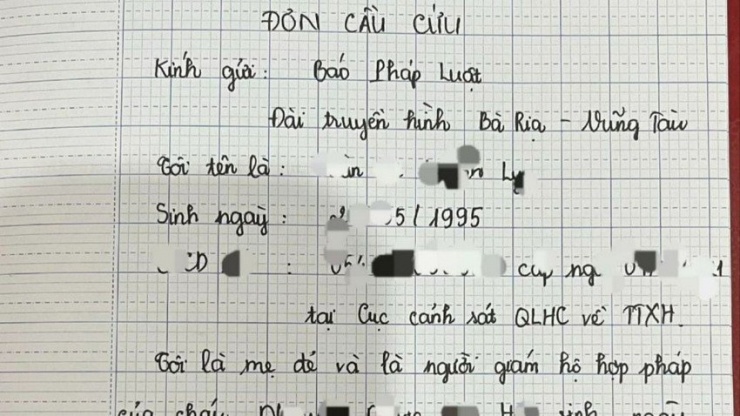 ĐƠN CẦU CỨU
Kính gửi: Báo Pháp Luật
Đài truyền hình Bà Rịa - Vũng Tàu
Tôi tên là:
Sinh ngày: 5/1995
: cấp ng
tại Cục cảnh sát QLHC về TTXH.
Tôi là mẹ đẻ và là người giám hộ hợp pháp
của cháu sinh ngày